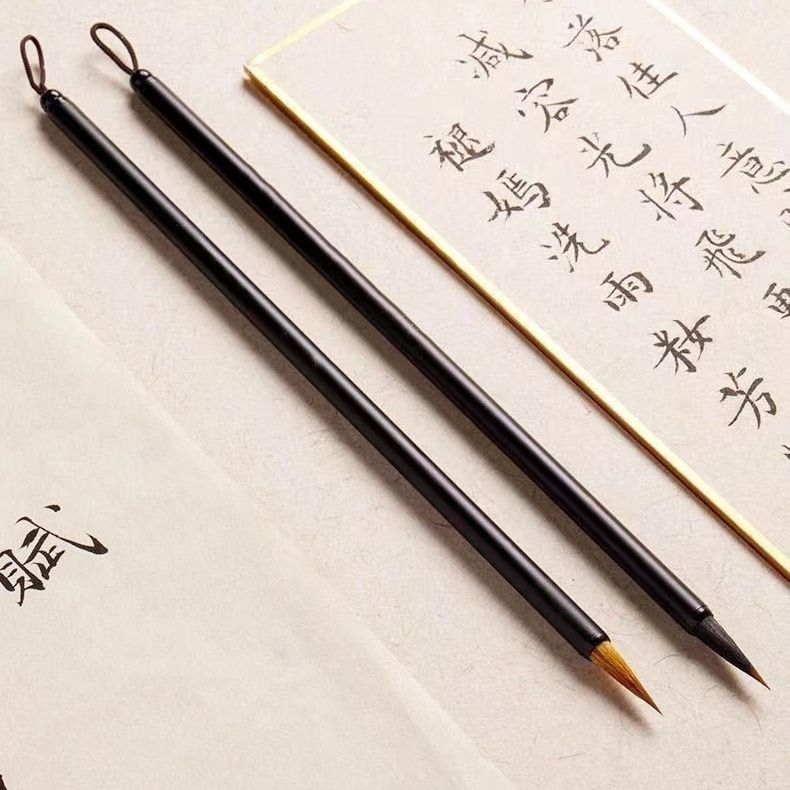 落佳人意
減容光將飛
褪嫣洗雨
芳
賦